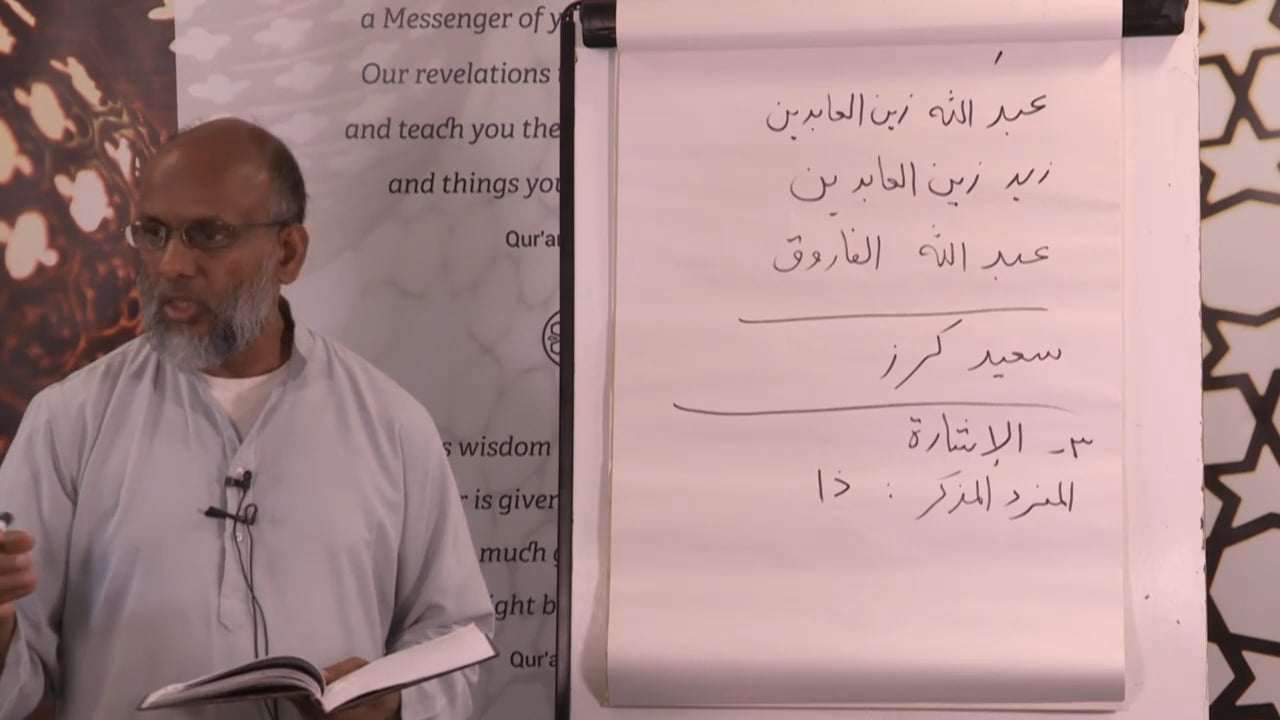 a Messenger of y
Our revelations
and teach you the
and things you
Qur'a
s wisdom
r is given
much
ight b
Qur'a
عبدُ الله زين العابدين
زيد زين العابدين
عبد الله الفاروق
سعيد كرز
٣- الإشارة
المفرد المذكر : ذا